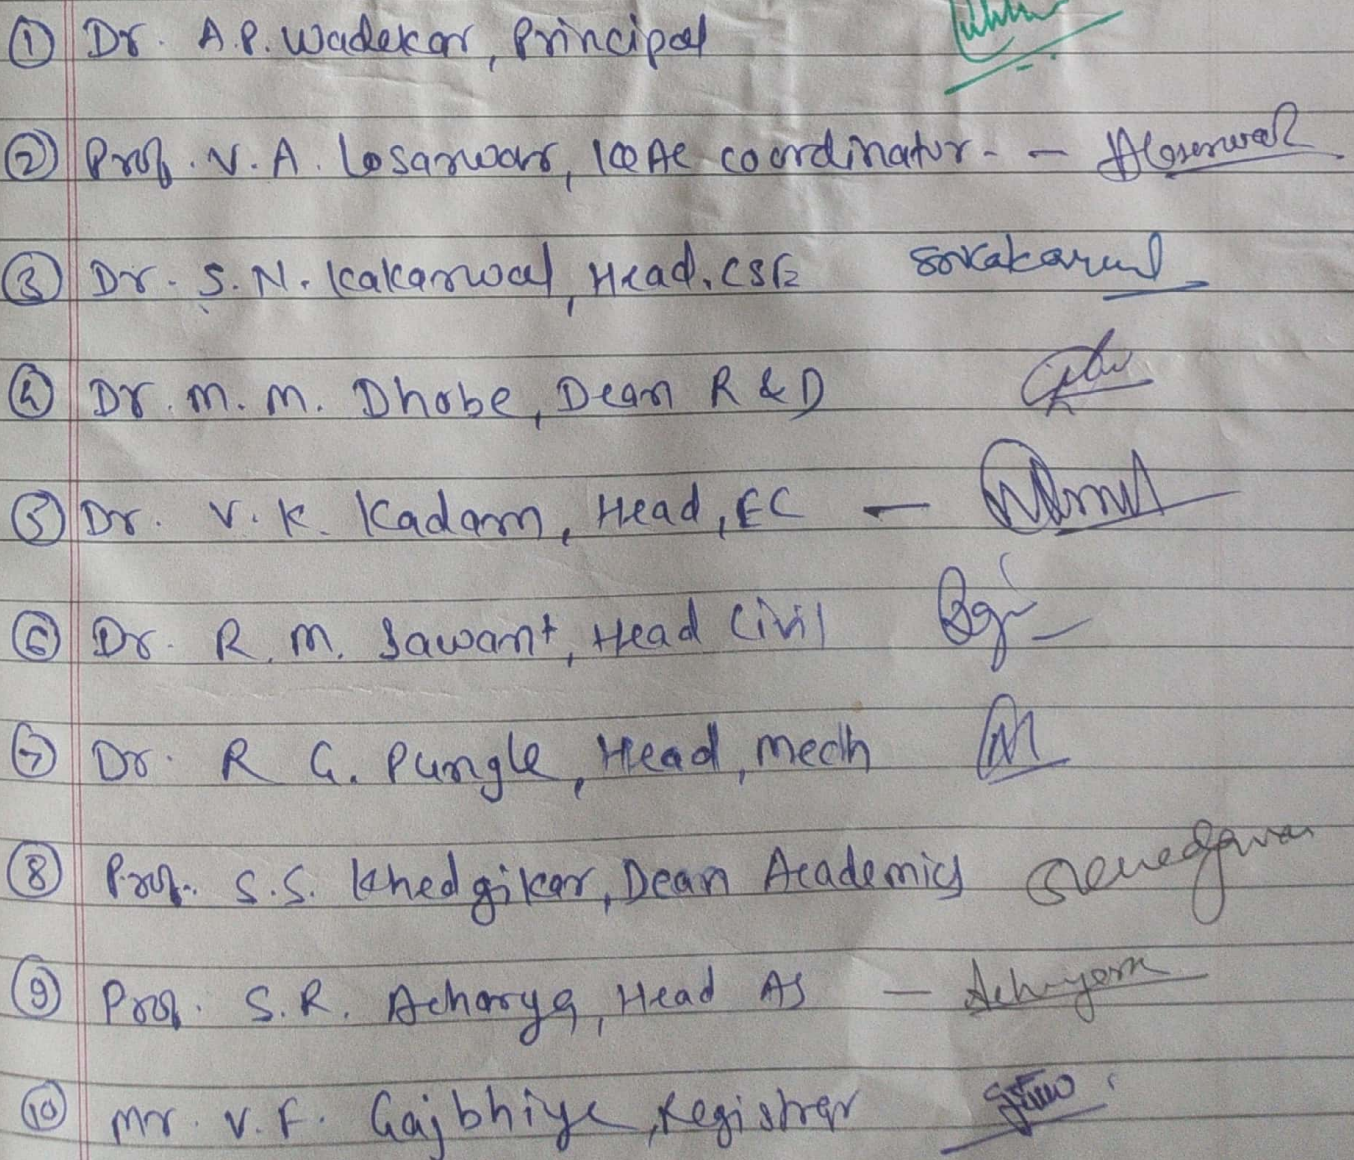 ① Dr. A.P. Wadekar, Principal
② Prof. V. A. Losarwar, IQAC coordinator - -
③ Dr. S. N. Kakarwal, Head, CSE
④ Dr. M. M. Dhobe, Dean R & D
⑤ Dr. V. K. Kadam, Head, EC -
⑥ Dr. R. M. Sawant, Head Civil
⑦ Dr. R G. Pungle, Head, Mech
⑧ Prof. S.S. Khedgikar, Dean Academics
⑨ Prof. S. R. Acharya, Head AS -
⑩ Mr. V. F. Gajbhiye, Registrar